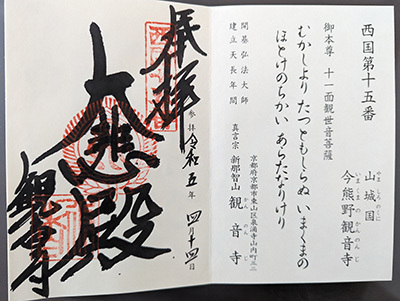 西国第十五番
やましろのくに
山城国
いまくまのかんのんじ
今熊野観音寺
御本尊 十一面観世音菩薩
むかしより たつともしらぬ いまくまの
ほとけのちかい あらたなりけり
開基弘法大師
建立天長年間
京都府京都市東山区泉涌寺山内町三二
真言宗 新那智山 観音寺
かんのんじ
奉拝
参拝 令和五年 四月十四日
大悲殿
観音寺